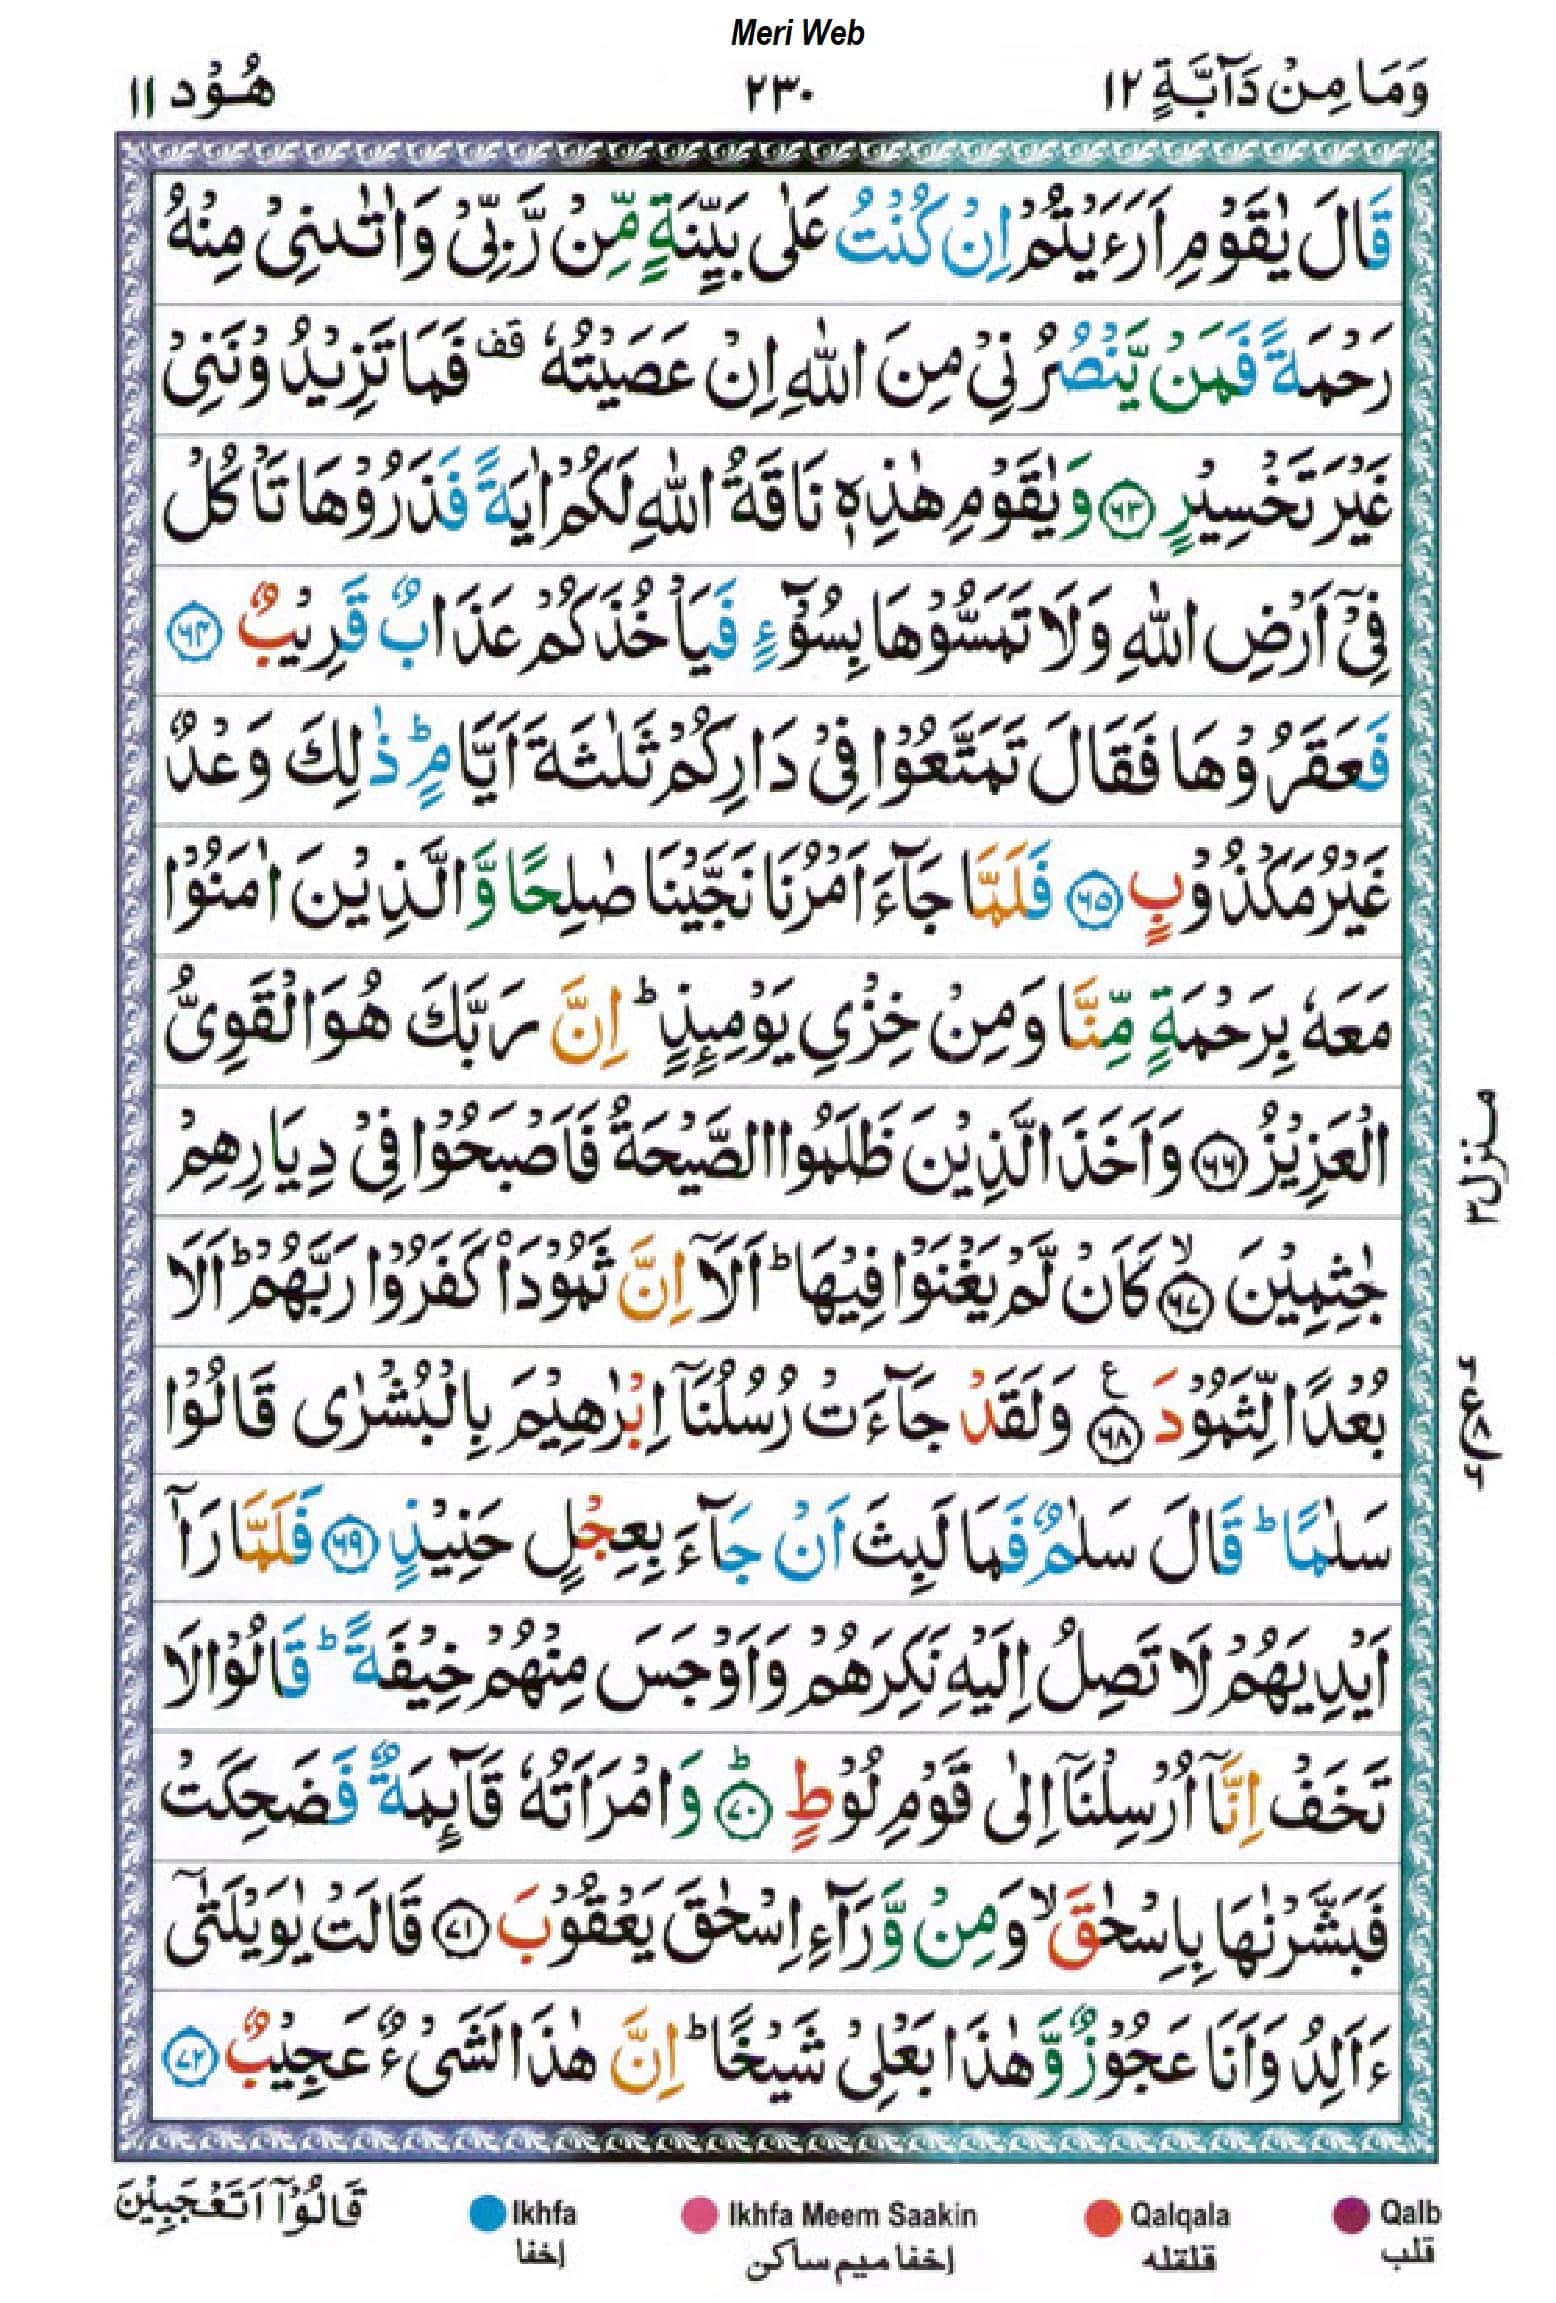 Meri Web
وَمَا مِنْ دَآبَّةٍ ١٢
٢٣٠
هُوْد ١١
قَالَ يٰقَوْمِ اَرَءَيْتُمْ اِنْ كُنْتُ عَلٰى بَيِّنَةٍ مِّنْ رَّبِّىْ وَاٰتٰىنِىْ مِنْهُ
رَحْمَةً فَمَنْ يَّنْصُرُنِىْ مِنَ اللّٰهِ اِنْ عَصَيْتُهٗ قف فَمَا تَزِيْدُوْنَنِىْ
غَيْرَ تَخْسِيْرٍ ٦٣ وَيٰقَوْمِ هٰذِهٖ نَاقَةُ اللّٰهِ لَكُمْ اٰيَةً فَذَرُوْهَا تَاْكُلْ
فِىْۤ اَرْضِ اللّٰهِ وَلَا تَمَسُّوْهَا بِسُوْٓءٍ فَيَاْخُذَكُمْ عَذَابٌ قَرِيْبٌ ٦٤
فَعَقَرُوْهَا فَقَالَ تَمَتَّعُوْا فِىْ دَارِكُمْ ثَلٰثَةَ اَيَّامٍ ؕ ذٰلِكَ وَعْدٌ
غَيْرُ مَكْذُوْبٍ ٦٥ فَلَمَّا جَآءَ اَمْرُنَا نَجَّيْنَا صٰلِحًا وَّالَّذِيْنَ اٰمَنُوْا
مَعَهٗ بِرَحْمَةٍ مِّنَّا وَمِنْ خِزْىِ يَوْمِئِذٍ ؕ اِنَّ رَبَّكَ هُوَ الْقَوِىُّ
الْعَزِيْزُ ٦٦ وَاَخَذَ الَّذِيْنَ ظَلَمُوا الصَّيْحَةُ فَاَصْبَحُوْا فِىْ دِيَارِهِمْ
جٰثِمِيْنَ ۙ ٦٧ كَاَنْ لَّمْ يَغْنَوْا فِيْهَا ؕ اَلَاۤ اِنَّ ثَمُوْدَا۟ كَفَرُوْا رَبَّهُمْ ؕ اَلَا
بُعْدًا لِّثَمُوْدَ ع ٦٨ وَلَقَدْ جَآءَتْ رُسُلُنَاۤ اِبْرٰهِيْمَ بِالْبُشْرٰى قَالُوْا
سَلٰمًا ؕ قَالَ سَلٰمٌ فَمَا لَبِثَ اَنْ جَآءَ بِعِجْلٍ حَنِيْذٍ ٦٩ فَلَمَّا رَاٰۤ
اَيْدِيَهُمْ لَا تَصِلُ اِلَيْهِ نَكِرَهُمْ وَاَوْجَسَ مِنْهُمْ خِيْفَةً ؕ قَالُوْا لَا
تَخَفْ اِنَّاۤ اُرْسِلْنَاۤ اِلٰى قَوْمِ لُوْطٍ ؕ ٧٠ وَامْرَاَتُهٗ قَآئِمَةٌ فَضَحِكَتْ
فَبَشَّرْنٰهَا بِاِسْحٰقَ ۙ وَمِنْ وَّرَآءِ اِسْحٰقَ يَعْقُوْبَ ٧١ قَالَتْ يٰوَيْلَتٰٓى
ءَاَلِدُ وَاَنَا عَجُوْزٌ وَّهٰذَا بَعْلِىْ شَيْخًا ؕ اِنَّ هٰذَا لَشَىْءٌ عَجِيْبٌ ٧٢
منزل ٣
ع
قَالُوْۤا اَتَعْجَبِيْنَ
Ikhfa Ikhfa Meem Saakin Qalqala Qalb
إخفا إخفا ميم ساكن قلقله قلب